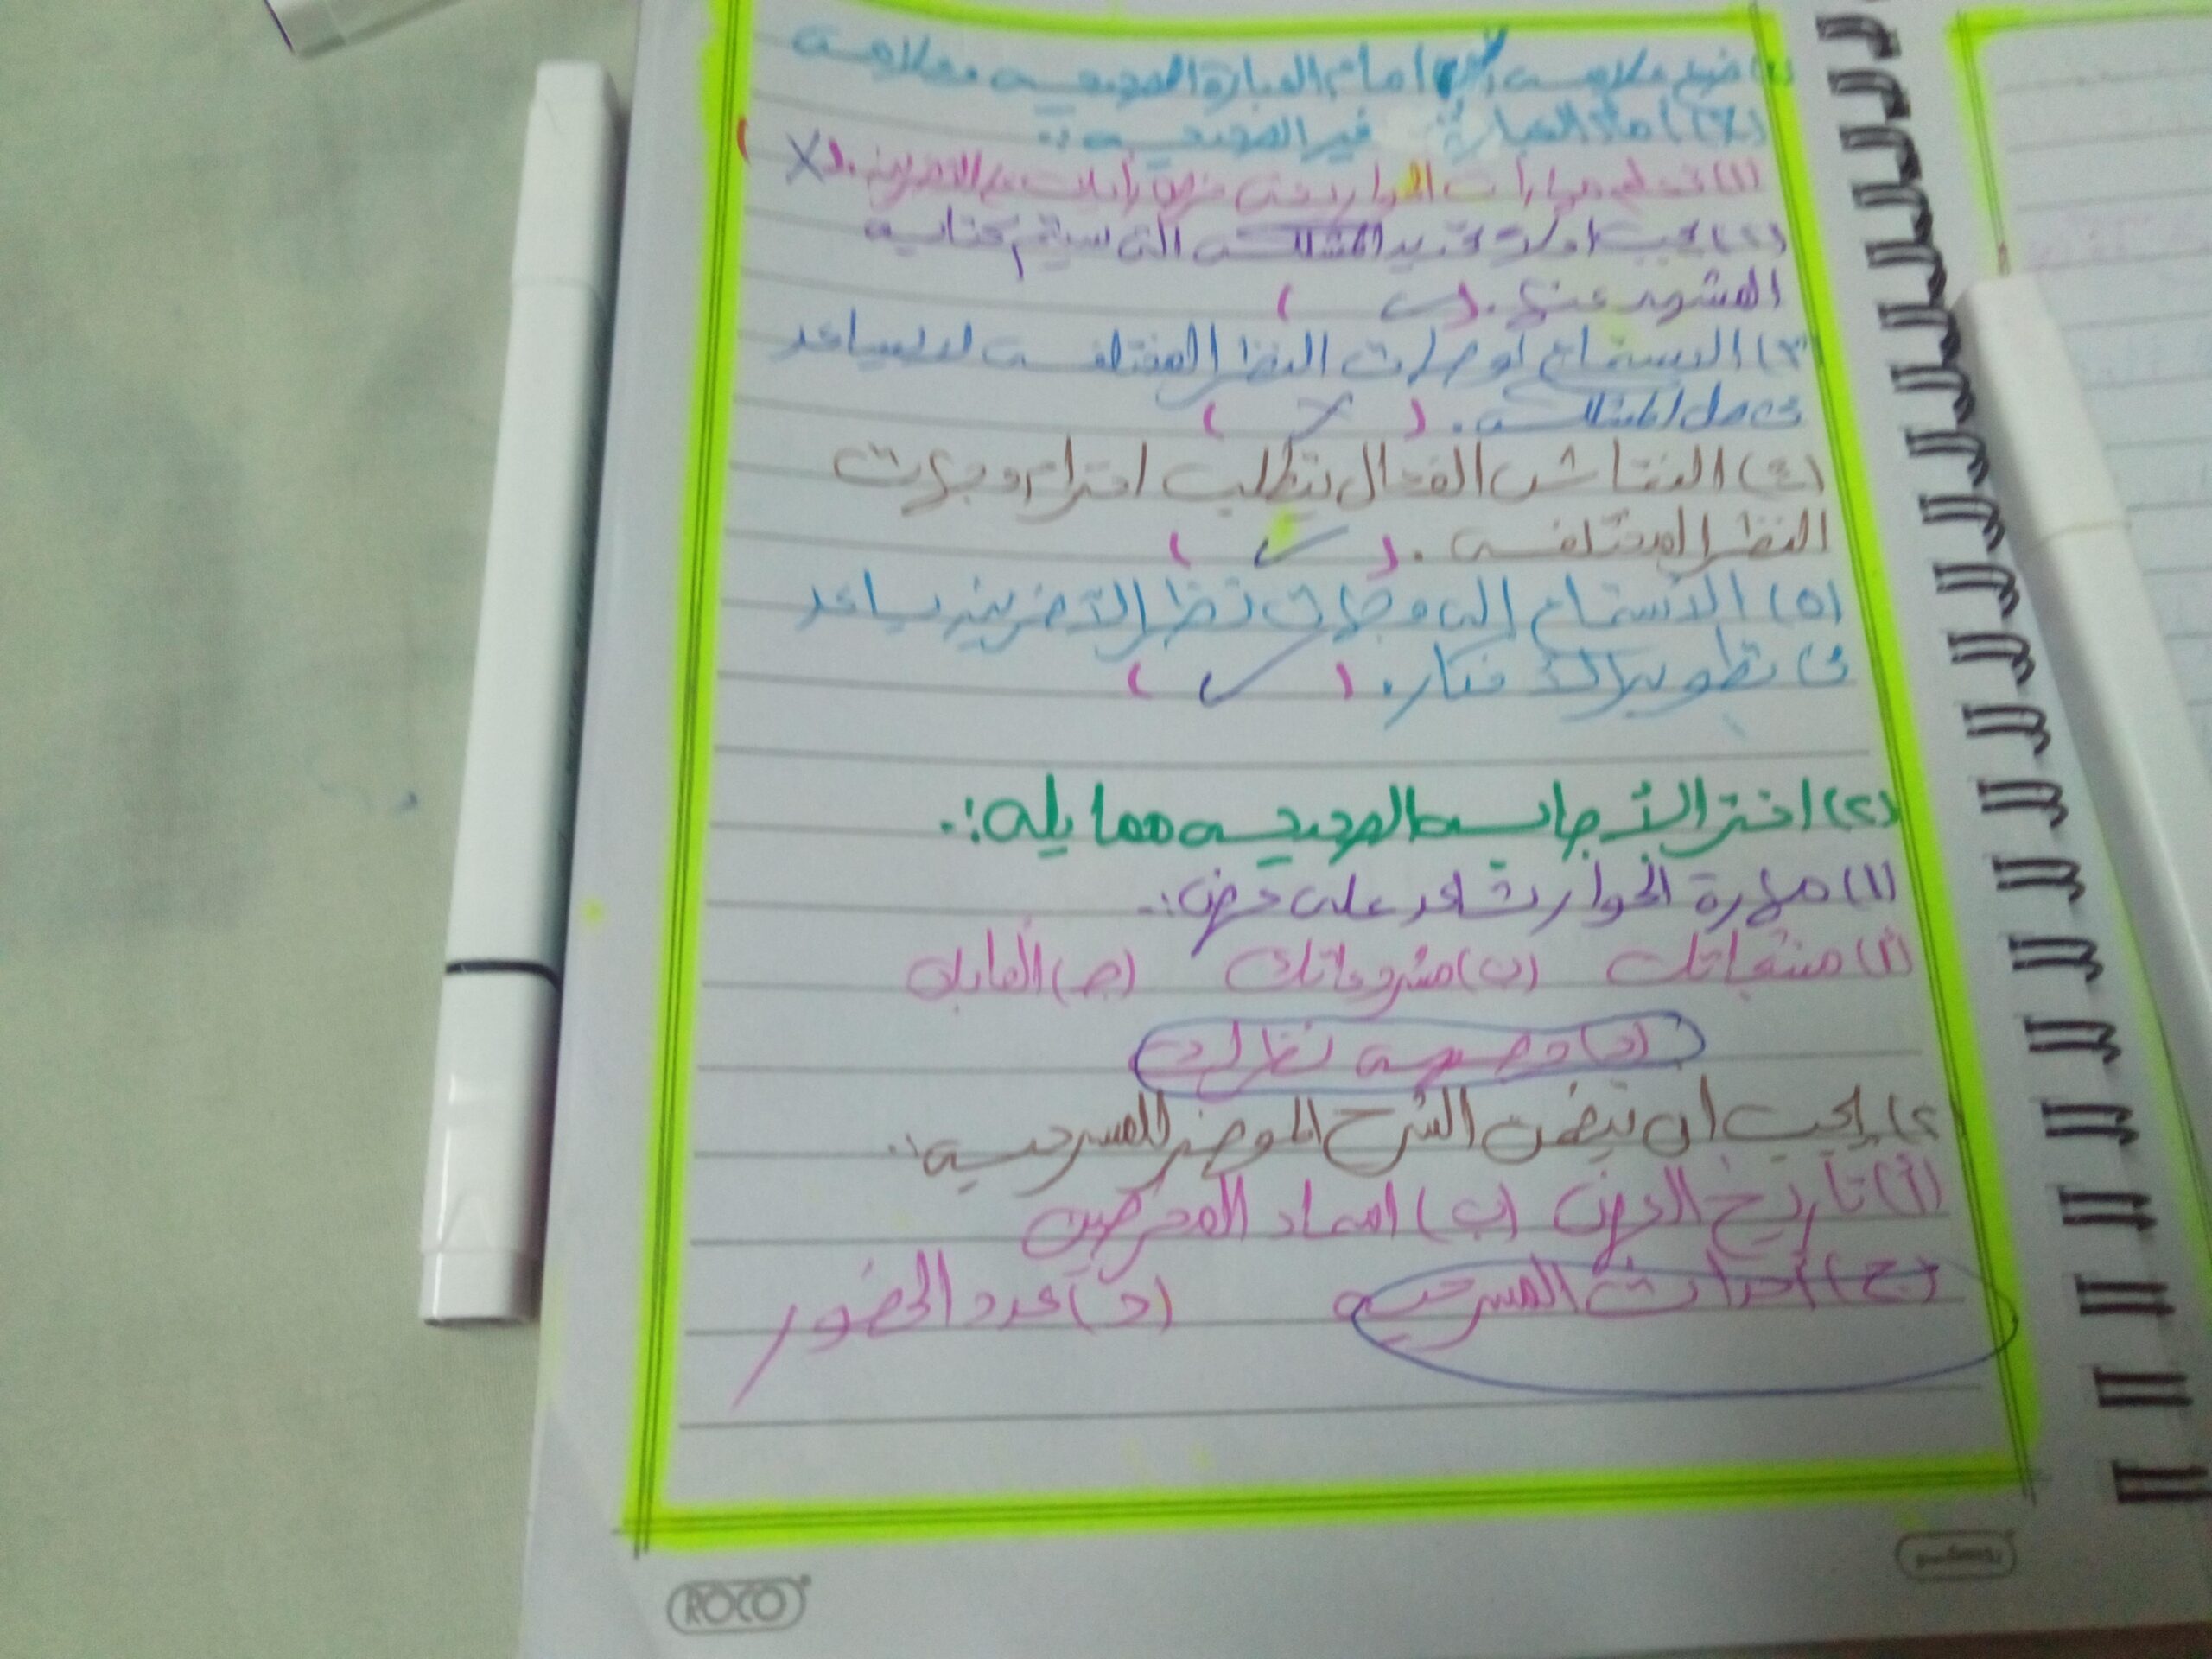 ١) ضع علامة (✓) امام العبارة الصحيحه وعلامة
(X) امام العبارة غير الصحيحه :-
(١) تعلم مهارات الحوار يعنى فرض رأيك على الاخرين. (X)
(٢) يجب اولا تحديد المشكلة التى سيتم كتابه
المشهد عنها. (✓)
(٣) الاستماع لوجهات النظر المختلفه لا يساعد
فى حل المشكلة. (X)
(٤) النقاش الفعال يتطلب احترام وجهات
النظر المختلفه. (✓)
(٥) الأستماع إلى وجهات نظر الآخرين يساعد
فى تطوير الأفكار. (✓)
(٢) اختر الأجابه الصحيحه مما يلى :-
(١) مهارة الحوار تساعد على عرض :-
(أ) منتجاتك (ب) مشروعاتك (ج) ألعابك
(د) وجهه نظرك
٢) يجب ان يتضمن الشرح الموجز للمسرحيه :-
(أ) تاريخ العرض (ب) اسماء المخرجين
(ج) أحداث المسرحيه (د) عدد الحضور
ROCO